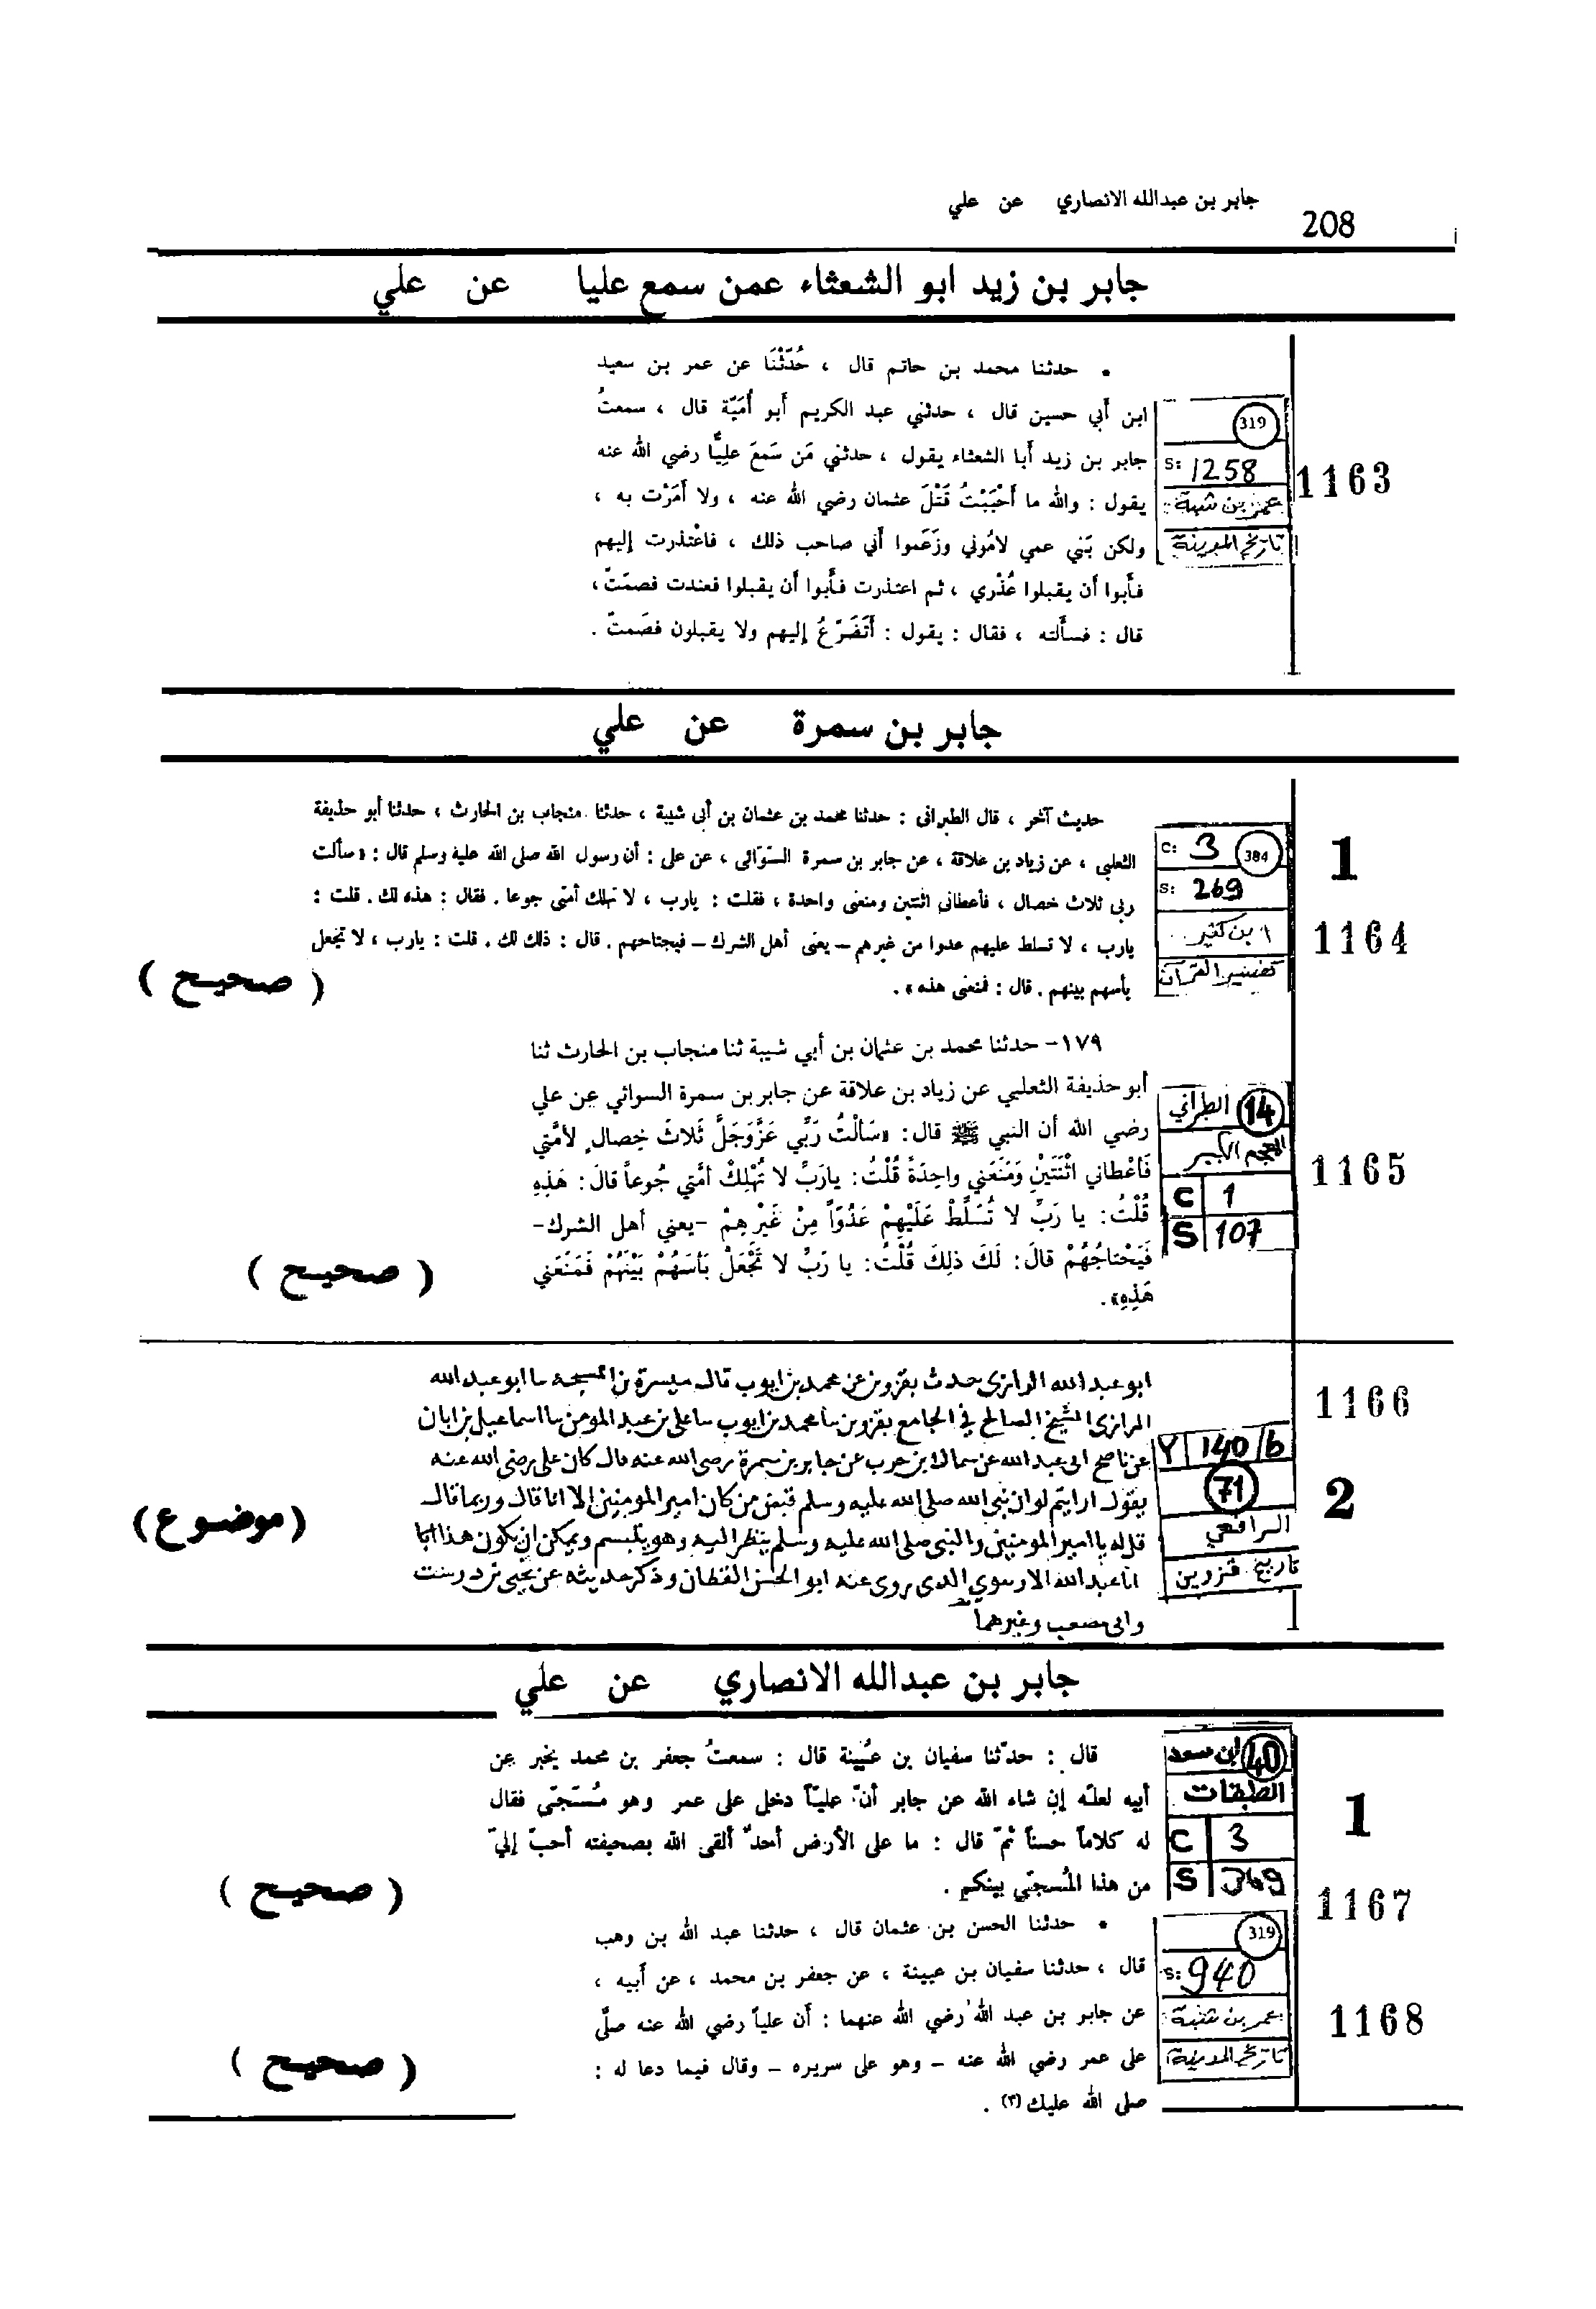 جابر بن عبدالله الانصاري عن علي
208
جابر بن زيد ابو الشعثاء عمن سمع عليا عن علي
• حدثنا محمد بن حاتم قال ، حُدّثْنَا عن عمر بن سعيد
ابن أبي حسين قال ، حدثني عبد الكريم أبو أُمَيّة قال ، سمعتُ
جابر بن زيد أبا الشعثاء يقول ، حدثني مَن سَمعَ علِيًّا رضي الله عنه
يقول : والله ما أَحْبَبْتُ قَتْلَ عثمان رضي الله عنه ، ولا أَمَرْت به ،
ولكن بَني عمي لامُوني وزَعَموا أني صاحب ذلك ، فاعْتذرت إليهم
فأبوا أن يقبلوا عُذْري ، ثم اعتذرت فأبوا أن يقبلوا فعندت فصمَتّ ،
قال : فسألته ، فقال : يقول : أَتَضَرّعُ إليهم ولا يقبلون فصَمتّ .
319
S: 1258
عمر بن شبة
تاريخ المدينة
1163
جابر بن سمرة عن علي
حديث آخر ، قال الطبرانى : حدثنا محمد بن عثمان بن أبى شيبة ، حدثنا منجاب بن الحارث ، حدثنا أبو حذيفة
الثعلبى ، عن زياد بن علاقة ، عن جابر بن سمرة السّوَائى ، عن على : أن رسول الله صلى الله عليه وسلم قال : «سألت
ربى ثلاث خصال ، فأعطانى اثنتين ومنعنى واحدة ، فقلت : يارب ، لا تهلك أمتى جوعا . فقال : هذه لك . قلت :
يارب ، لا تسلط عليهم عدوا من غيرهم – يعنى أهل الشرك – فيجتاحهم . قال : ذلك لك . قلت : يارب ، لا تجعل
بأسهم بينهم . قال : فمنعنى هذه» .
( صحيح )
C: 3 384
S: 269
ابن كثير
تفسير القرآن
1
1164
١٧٩- حدثنا محمد بن عثمان بن أبي شيبة ثنا منجاب بن الحارث ثنا
أبو حذيفة الثعلبي عن زياد بن علاقة عن جابر بن سمرة السوائي عن علي
رضي الله أن النبي ﷺ قال: «سَألْتُ رَبِّي عَزَّوَجَلَّ ثَلاثَ خِصالٍ لأمَّتي
فَأعْطاني اثْنَتَيْنِ وَمَنَعَني واحِدَةً قُلْتُ: يارَبِّ لا تُهْلِكْ أمَّتي جُوعاً قالَ: هَذِهِ
قُلْتُ: يا رَبِّ لا تُسَلِّطْ عَلَيْهِمْ عَدُوّاً مِنْ غَيْرِهِمْ -يعني أهل الشرك-
فَيَحْتاجُهُمْ قالَ: لَكَ ذلِكَ قُلْتُ: يا رَبِّ لا تَجْعَلْ بَأسَهُمْ بَيْنَهُمْ فَمَنَعَني
هَذِهِ» .
( صحيح )
14 الطبراني
المعجم الكبير
C 1
S 107
1165
ابو عبد الله الرازى حدث بقزوين عن محمد بن ايوب قال ميسرة بن ابو عبد الله
الرازى الشيخ الصالح في الجامع بقزوين محمد بن ايوب على بن عبد المومن اسماعيل بن ابان
عن ناصح ابى عبد الله عن سماك بن حرب عن جابر بن سمرة رضى الله عنه قال كان على رضى الله عنه
يقول ارايتم لو ان نبى الله صلى الله عليه وسلم قبض من كان امير المومنين الا انا قال وربما قال
قل له يا امير المومنين والنبى صلى الله عليه وسلم ينظر اليه وهو يتبسم ويمكن ان يكون هذا ابا
عبد الله الارموي الذى روى عنه ابو الحسن القطان وذكر حديثه عن يحيى
وابى مصعب وغيرهما
(موضوع)
Y 140/b
71
الرافعي
تاريخ قزوين
1166
2
جابر بن عبدالله الانصاري عن علي
قال : حدّثنا سفيان بن عُيينة قال : سمعتُ جعفر بن محمد يخبر عن
أبيه لعلّه إن شاء الله عن جابر أنّ عليّاً دخل على عمر وهو مُسَجّى فقال
له كلاماً حسناً ثمّ قال : ما على الأرض أحدٌ ألقى الله بصحيفته أحبّ إليّ
من هذا المُسجّى بينكم .
( صحيح )
40 ابن سعد
الطبقات
C 3
S 369
1
1167
• حدثنا الحسن بن عثمان قال ، حدثنا عبد الله بن وهب
قال ، حدثنا سفيان بن عيينة ، عن جعفر بن محمد ، عن أبيه ،
عن جابر بن عبد الله رضي الله عنهما : أن علياً رضي الله عنه صلَّى
على عمر رضي الله عنه – وهو على سريره – وقال فيما دعا له :
صلى الله عليك (٣) .
( صحيح )
319
S: 940
عمر بن شبة
تاريخ المدينة
1168